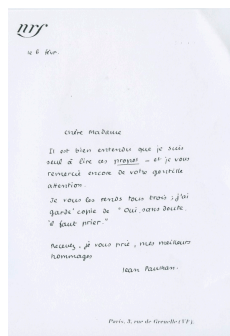 nrf
Chère Madame
Il est bien entendu que je suis
seul à lire ces propos – et je vous
remercie encore de votre gentille
attention.
Je vous les rends tous trois ; j'ai
gardé copie de " Oui, sans doute
il faut prier. "
Recevez, je vous prie, mes meilleurs
hommages
Jean Paulhan.
Paris, 5, rue de Grenelle (VIIe)